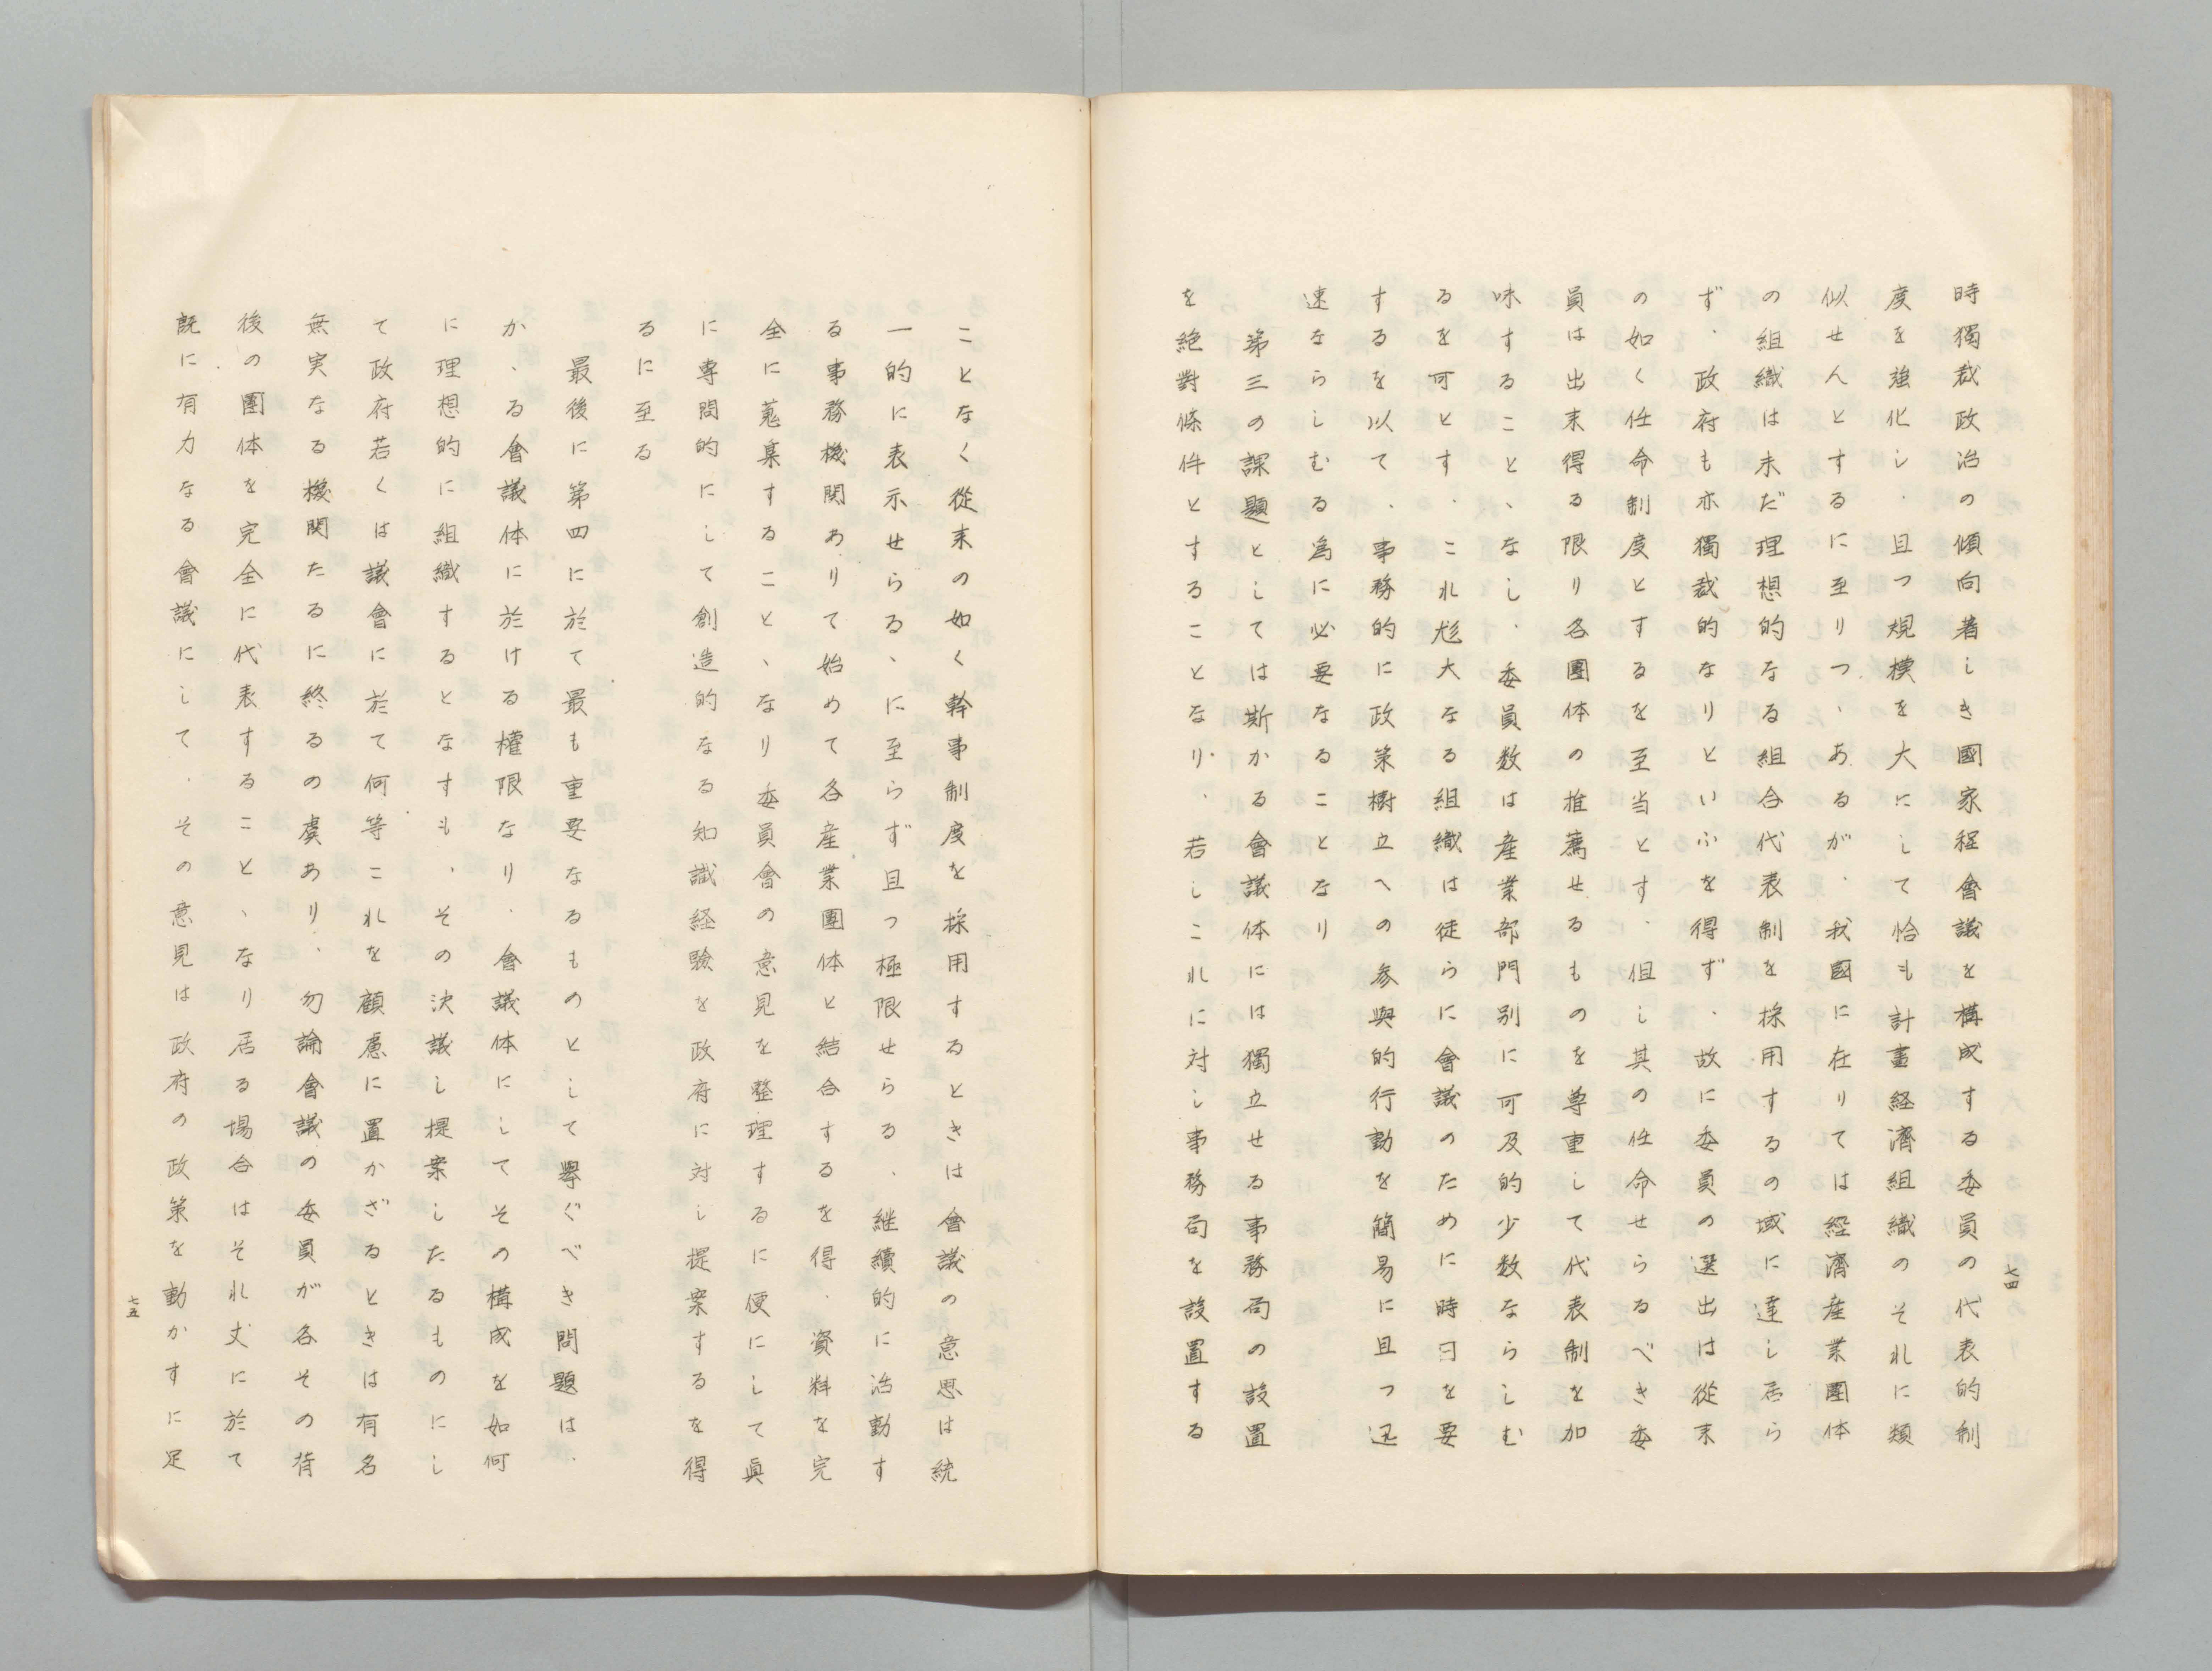 時獨裁政治の傾向著しき國家程會議を構成する委員の代表的制
度を強化し、且つ規模を大にして恰も計畫経濟組織のそれに類
似せんとするに至りつヽあるが、我國に在りては經濟産業團体
の組織は未だ理想的なる組合代表制を採用するの域に達し居ら
ず、政府も亦獨裁的なりといふを得ず、故に委員の選出は從末
の如く任命制度とするを至当とす、但し其の任命せらるべき委
員は出末得る限り各團体の推薦せるものを尊重して代表制を加
味することヽなし、委員数は産業部門別に可及的少数ならしむ
るを可とす、これ尨大なる組織は徒らに會議のために時日を要
するを以て、事務的に政策樹立への参與的行動を簡易に且つ迅
速ならしむる為に必要なることなり
第三の課題としては斯かる會議体には獨立せる事務局の設置
を絶對條件とすることなり、若しこれに対し事務局を設置する
七四
ことなく從末の如く幹事制度を採用するときは會議の意思は統
一的に表示せらるヽに至らず且つ極限せらる、継續的に活動す
る事務機関ありて始めて各産業團体と結合するを得、資料を完
全に蒐集することヽなり委員會の意見を整理するに便にして眞
に専問的にして創造的なる知識経験を政府に対し提案するを得
るに至る
最後に第四に於て最も重要なるものとして擧ぐべき問題は、
かヽる會議体に於ける權限なり、會議体にしてその構成を如何
に理想的に組織するとなすも、その決議し提案したるものにし
て政府若くは議會に於て何等これを顧慮に置かざるときは有名
無実なる機関たるに終るの虞あり、勿論會議の委員が各その背
後の團体を完全に代表することヽなり居る場合はそれ丈に於て
既に有力なる會議にして、その意見は政府の政策を動かすに足
七五